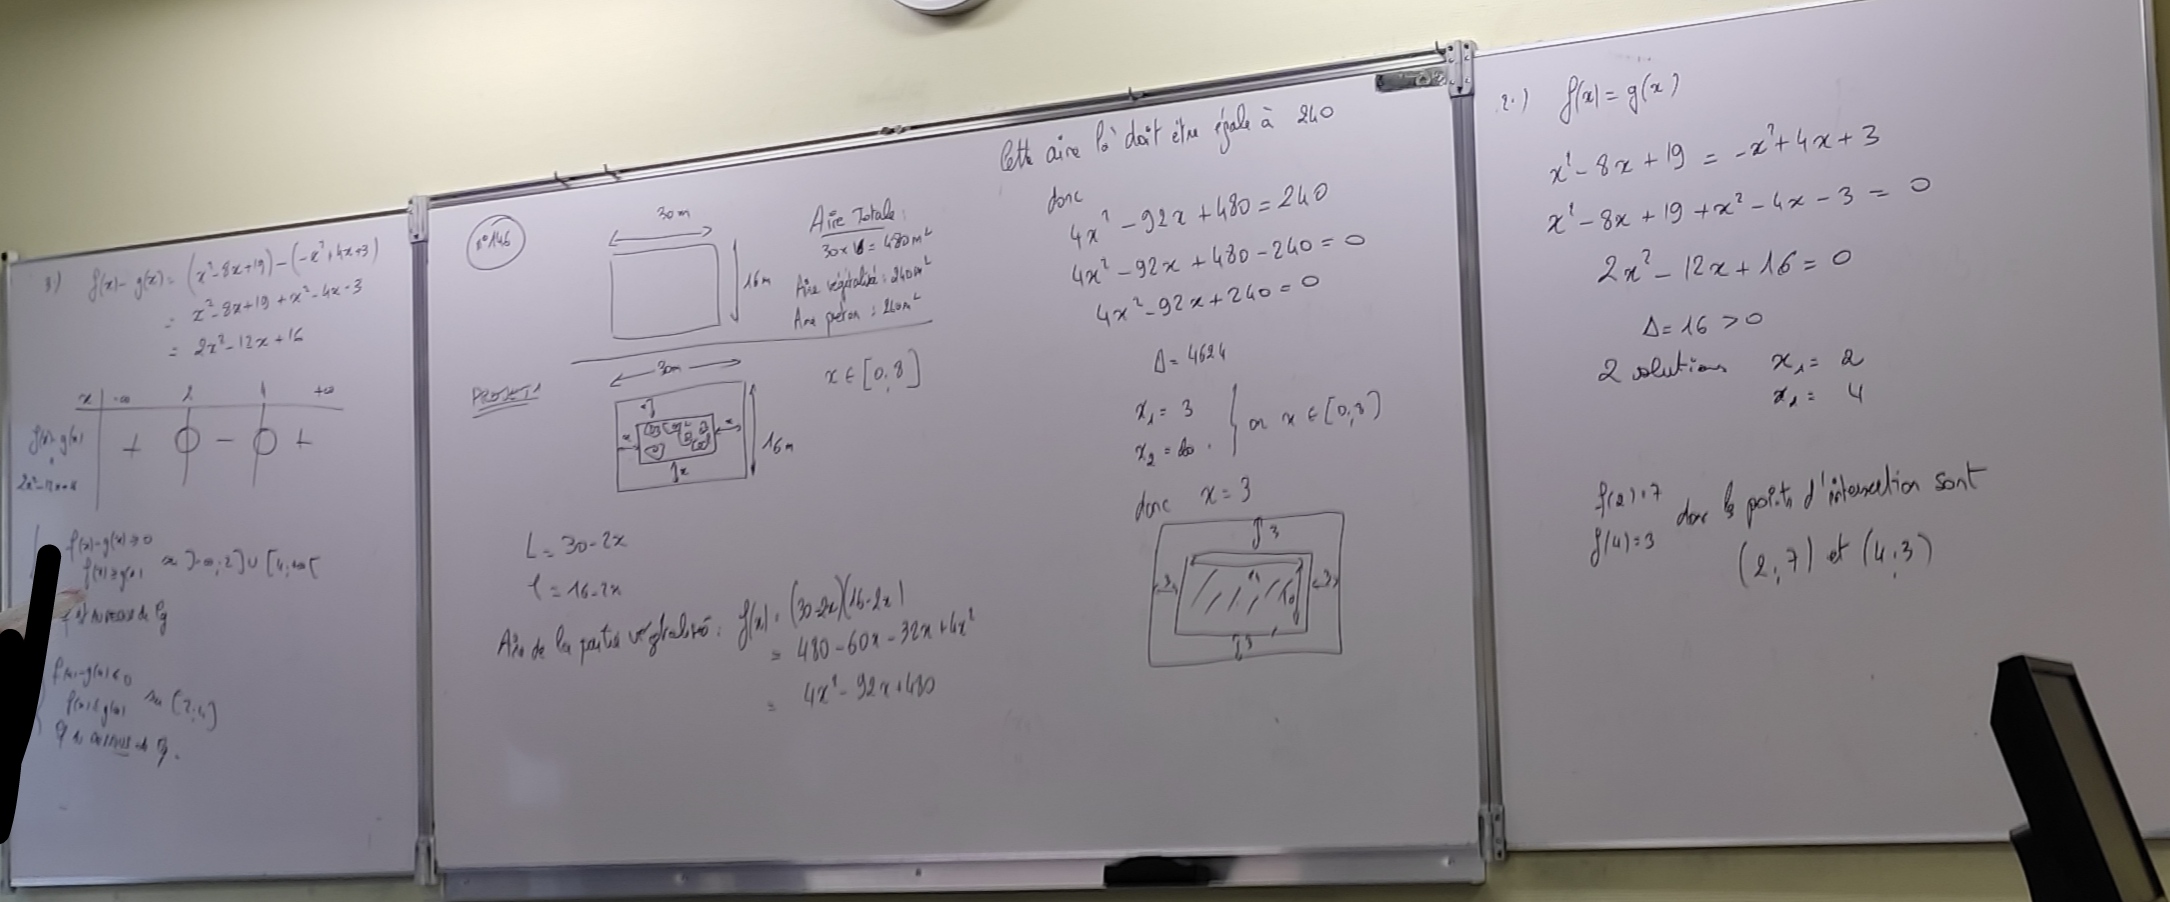 3.) f(x) - g(x) = (x² - 8x + 19) - (-x² + 4x + 3)
= x² - 8x + 19 + x² - 4x - 3
= 2x² - 12x + 16
x -∞ 2 +∞
f(x) - g(x) + 0 - 0 +
f(x) - g(x) ≥ 0
f(x) ≥ g(x) ]-∞; 2] ∪ [4; +∞[
f(x) - g(x) ≤ 0
f(x) ≤ g(x) [2; 4]
n°146
30m
16m
Aire Totale :
30 x 16 = 480 m²
Aire végétalisé : 240 m²
Aire piéton : 240 m²
PROJET 1
30m
x
x
x
16m
x ∈ [0, 8]
L = 30 - 2x
l = 16 - 2x
Aire de la partie végétalisé : f(x) = (30 - 2x)(16 - 2x)
= 480 - 60x - 32x + 4x²
= 4x² - 92x + 480
Cette aire là doit être égale à 240
donc
4x² - 92x + 480 = 240
4x² - 92x + 480 - 240 = 0
4x² - 92x + 240 = 0
Δ = 4624
x₁ = 3
x₂ = 20 . } or x ∈ [0, 8]
donc x = 3
3
3
3
3
10
2.) f(x) = g(x)
x² - 8x + 19 = -x² + 4x + 3
x² - 8x + 19 + x² - 4x - 3 = 0
2x² - 12x + 16 = 0
Δ = 16 > 0
2 solutions x₁ = 2
x₂ = 4
f(2) = 7
f(4) = 3 donc les points d'intersection sont
(2; 7) et (4; 3)